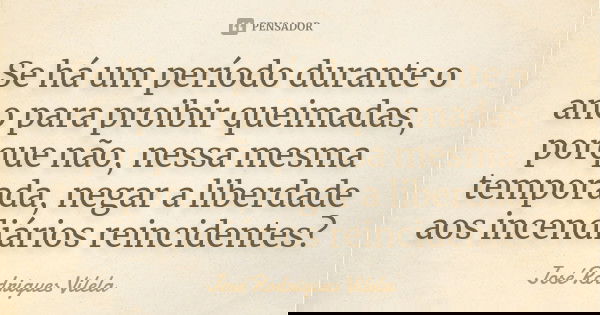 PENSADOR
Se há um período durante o
ano para proibir queimadas,
porque não, nessa mesma
temporada, negar a liberdade
aos incendiários reincidentes?
José Rodrigues Vilela